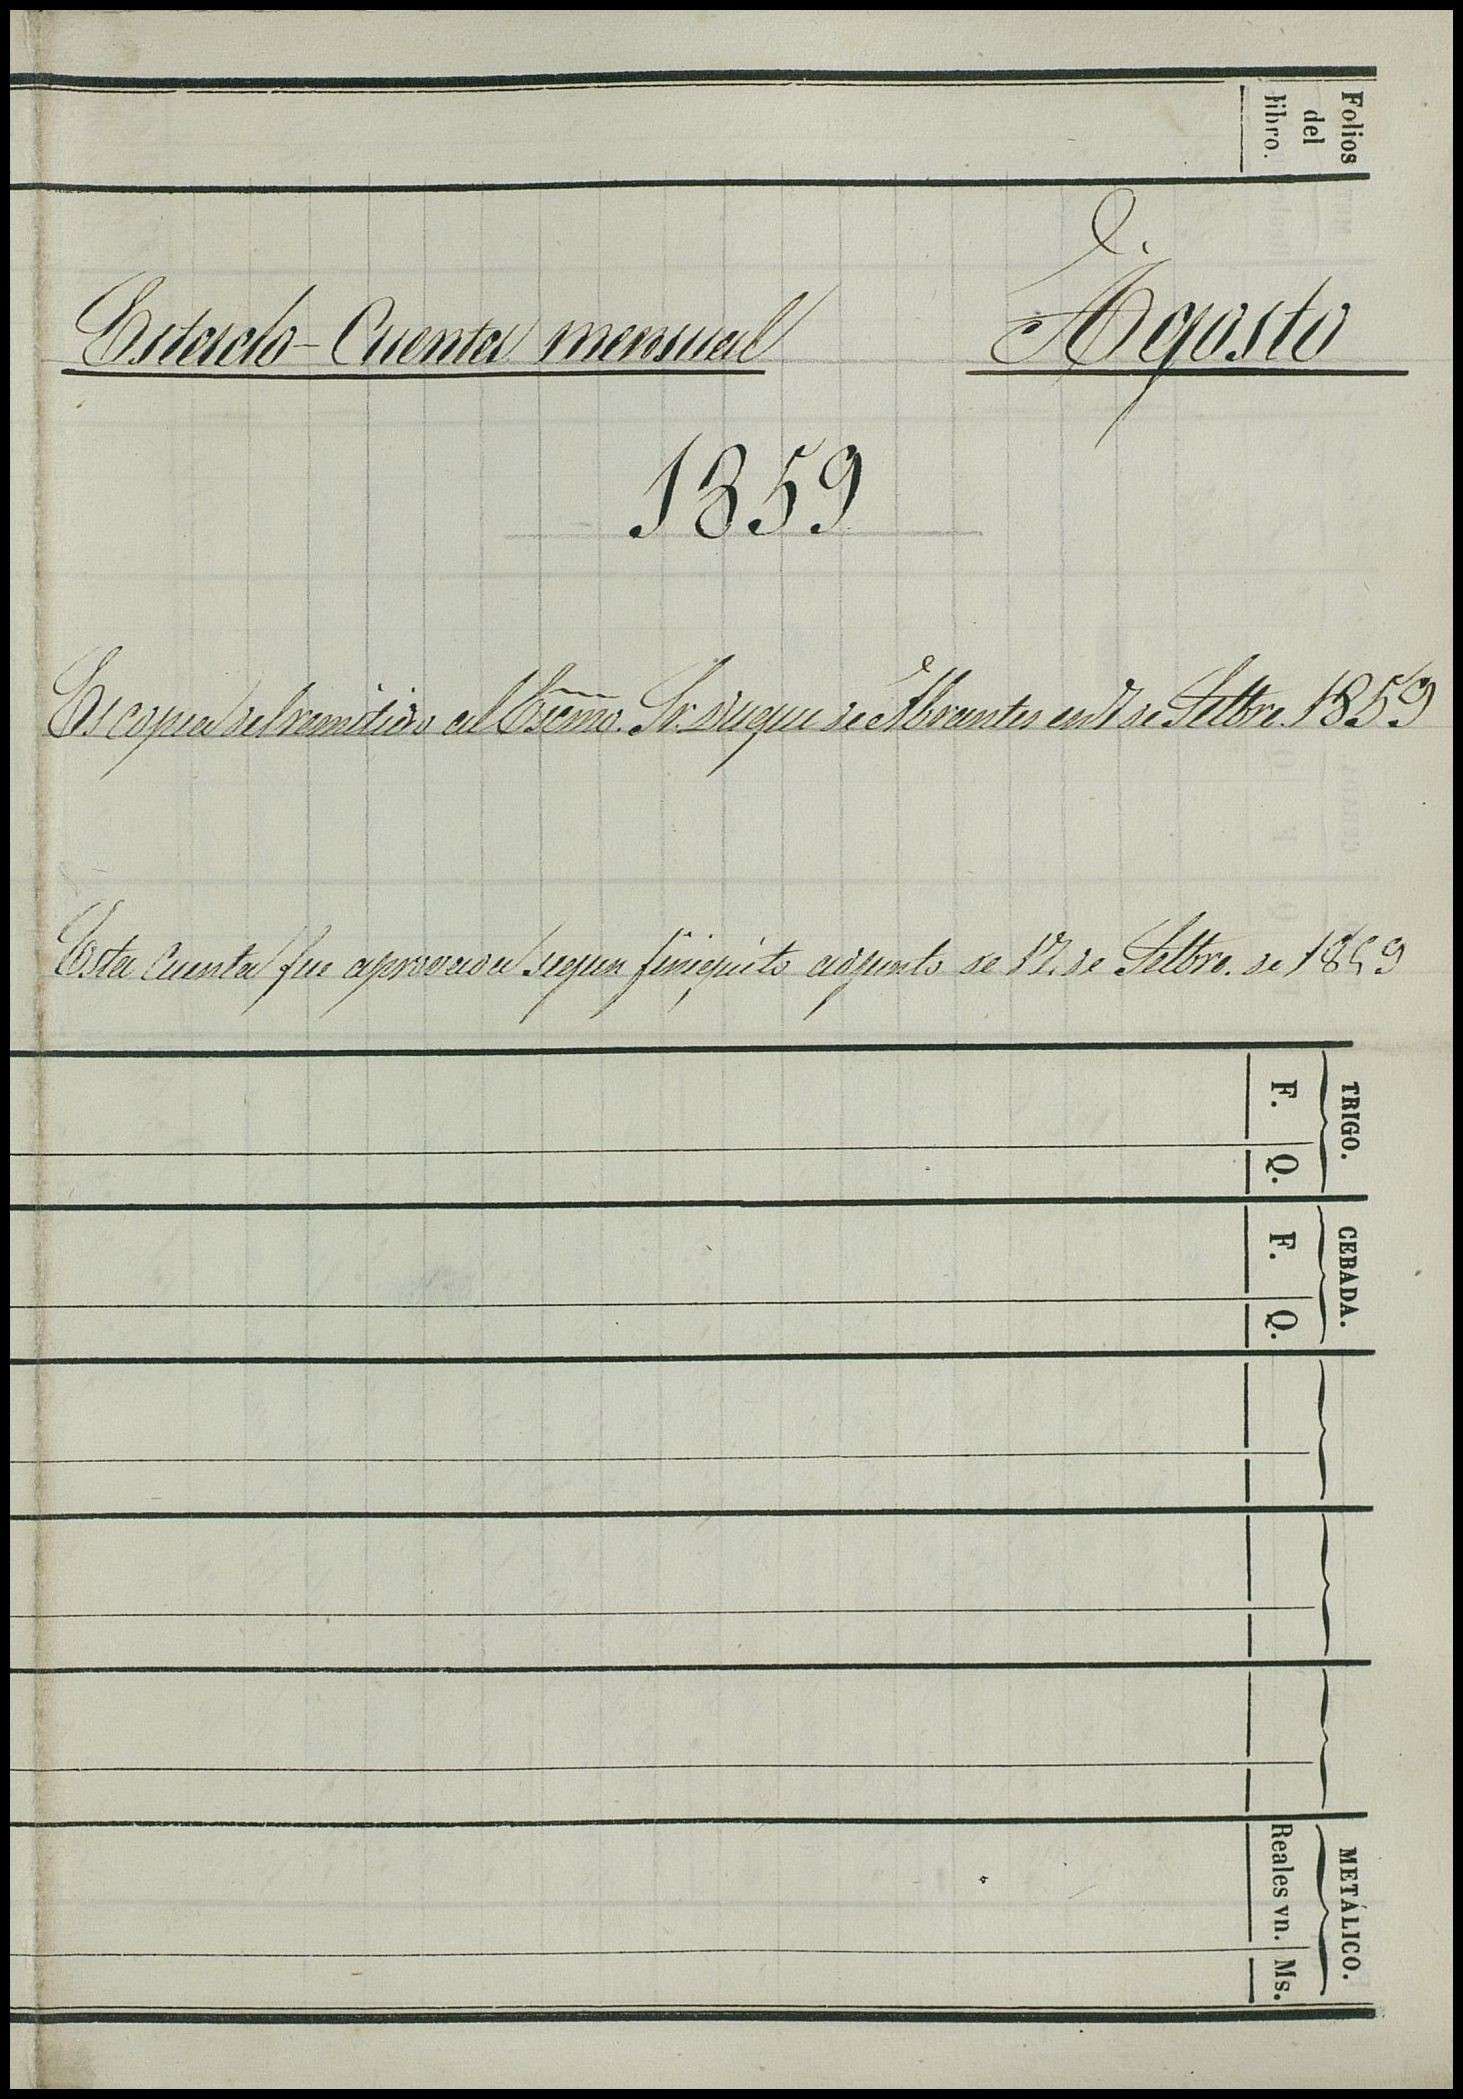 Folios
del
libro.
Estado-Cuenta mensual Agosto
1859
Es copia del remitido al Escmo. Sr. Duque de Abrantes en 7 de Setbre. 1859
Esta cuenta fue aprovada segun finiquito adjunto de 12 de Setbre. de 1859
TRIGO.
F. Q.
CEBADA.
F. Q.
METÁLICO.
Reales vn. Ms.